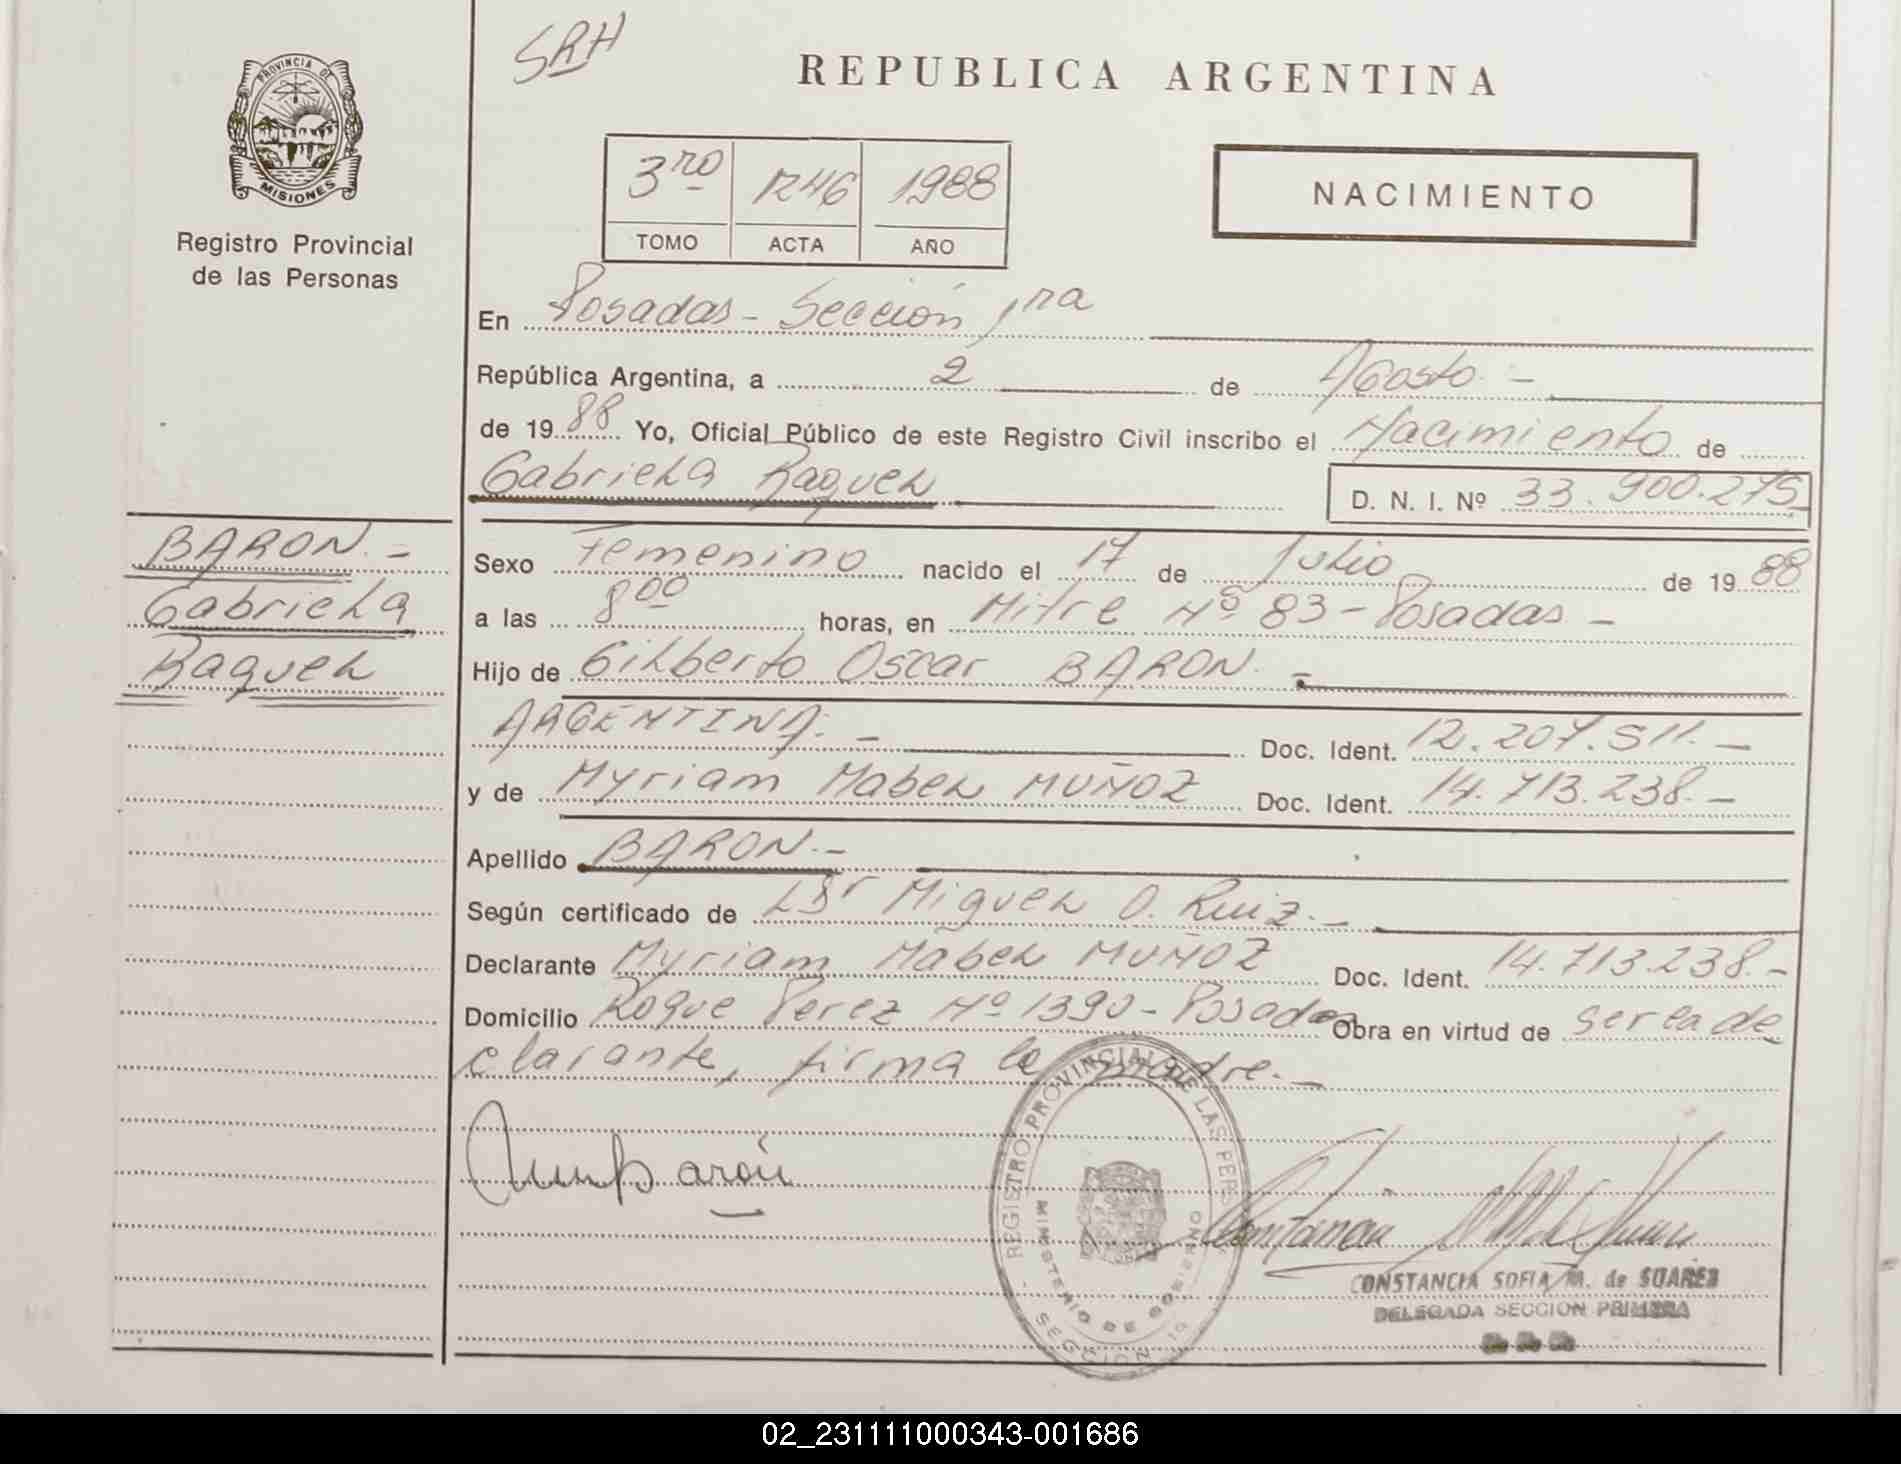 SRH
REPUBLICA ARGENTINA
PROVINCIA DE
MISIONES
Registro Provincial
de las Personas
3ro 1246 1988
TOMO ACTA AÑO
NACIMIENTO
En Posadas - Sección 1ra
República Argentina, a 2 de Agosto. -
de 1988 Yo, Oficial Público de este Registro Civil inscribo el Nacimiento de
Gabriela Raquel
D. N. I. Nº 33.900.275
BARON. -
Gabriela
Raquel
Sexo Femenino nacido el 17 de Julio de 1988
a las 8 00 horas, en Mitre Nº 83 - Posadas -
Hijo de Gilberto Oscar BARON. -
ARGENTINA. - Doc. Ident. 12.207.511. -
y de Myriam Mabel MUÑOZ Doc. Ident. 14.713.238. -
Apellido BARON. -
Según certificado de Dr Miguel O. Ruiz. -
Declarante Myriam Mabel MUÑOZ Doc. Ident. 14.713.238. -
Domicilio Roque Perez Nº 1390 - Posadas Obra en virtud de ser la de
clarante, firma la madre. -
REGISTRO PROVINCIAL DE LAS PERS
MINISTERIO DE GOBIERNO
SECCION 1a
Baron
CONSTANCIA SOFIA M. de SUAREZ
DELEGADA SECCION PRIMERA
02_231111000343-001686